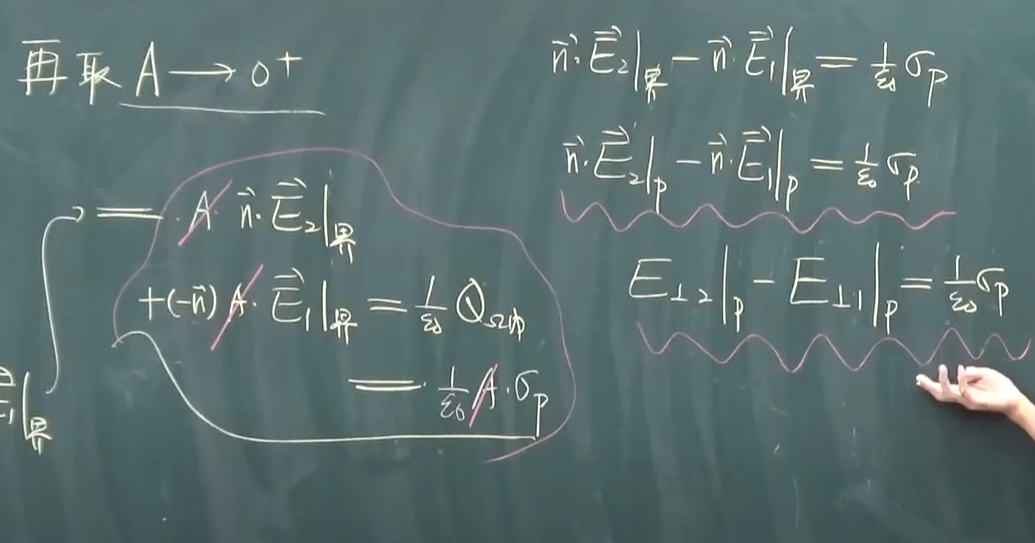 再取 A → 0⁺
= A n⃗·E⃗₂|界
+(-n⃗) A · E⃗₁|界 = 1/ε₀ Q_Ω内
= 1/ε₀ A·σ_p
E⃗₁|界
n⃗·E⃗₂|界 − n⃗·E⃗₁|界 = 1/ε₀ σ_p
n⃗·E⃗₂|p − n⃗·E⃗₁|p = 1/ε₀ σ_p
E⊥₂|p − E⊥₁|p = 1/ε₀ σ_p